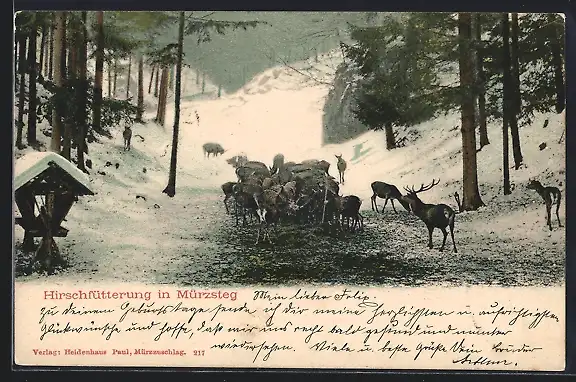 Hirschfütterung in Mürzsteg Mein lieber Felix
zu deinem Geburtstage sende ich dir meine herzlichsten u. aufrichtigsten
Glückwünsche und hoffe, daß wir uns recht bald gesund und munter
wiedersehen. Viele u. beste Grüße Dein Bruder
Verlag: Heidenhaus Paul, Mürzzuschlag. 217